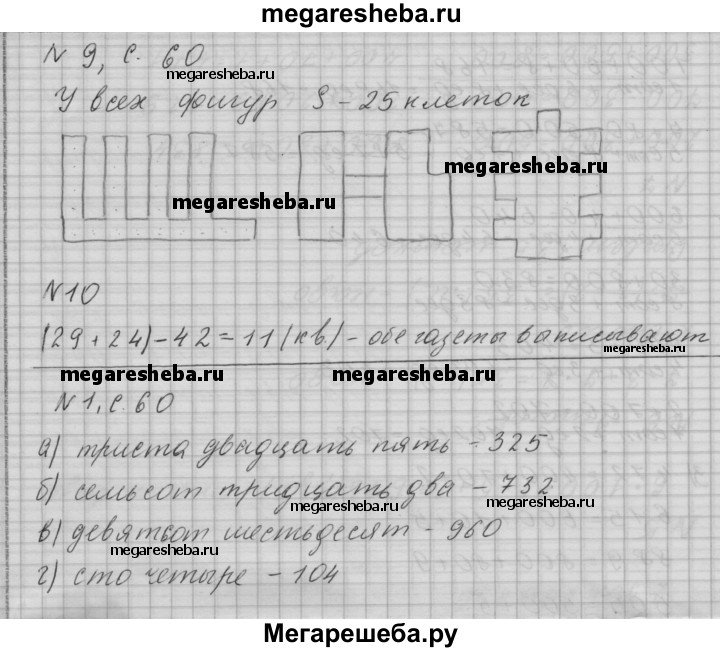 megaresheba.ru
N 9, с. 60
megaresheba.ru
У всех фигур S - 25 клеток
megaresheba.ru
megaresheba.ru
N10
(29 + 24) - 42 = 11 (кв.) - обе газеты выписывают
megaresheba.ru
megaresheba.ru
megaresheba.ru
N1, с. 60
а) триста двадцать пять - 325
б) семьсот тридцать два - 732
megaresheba.ru
megaresheba.ru
в) девятьсот шестьдесят - 960
megaresheba.ru
г) сто четыре - 104
Мегарешеба.ру